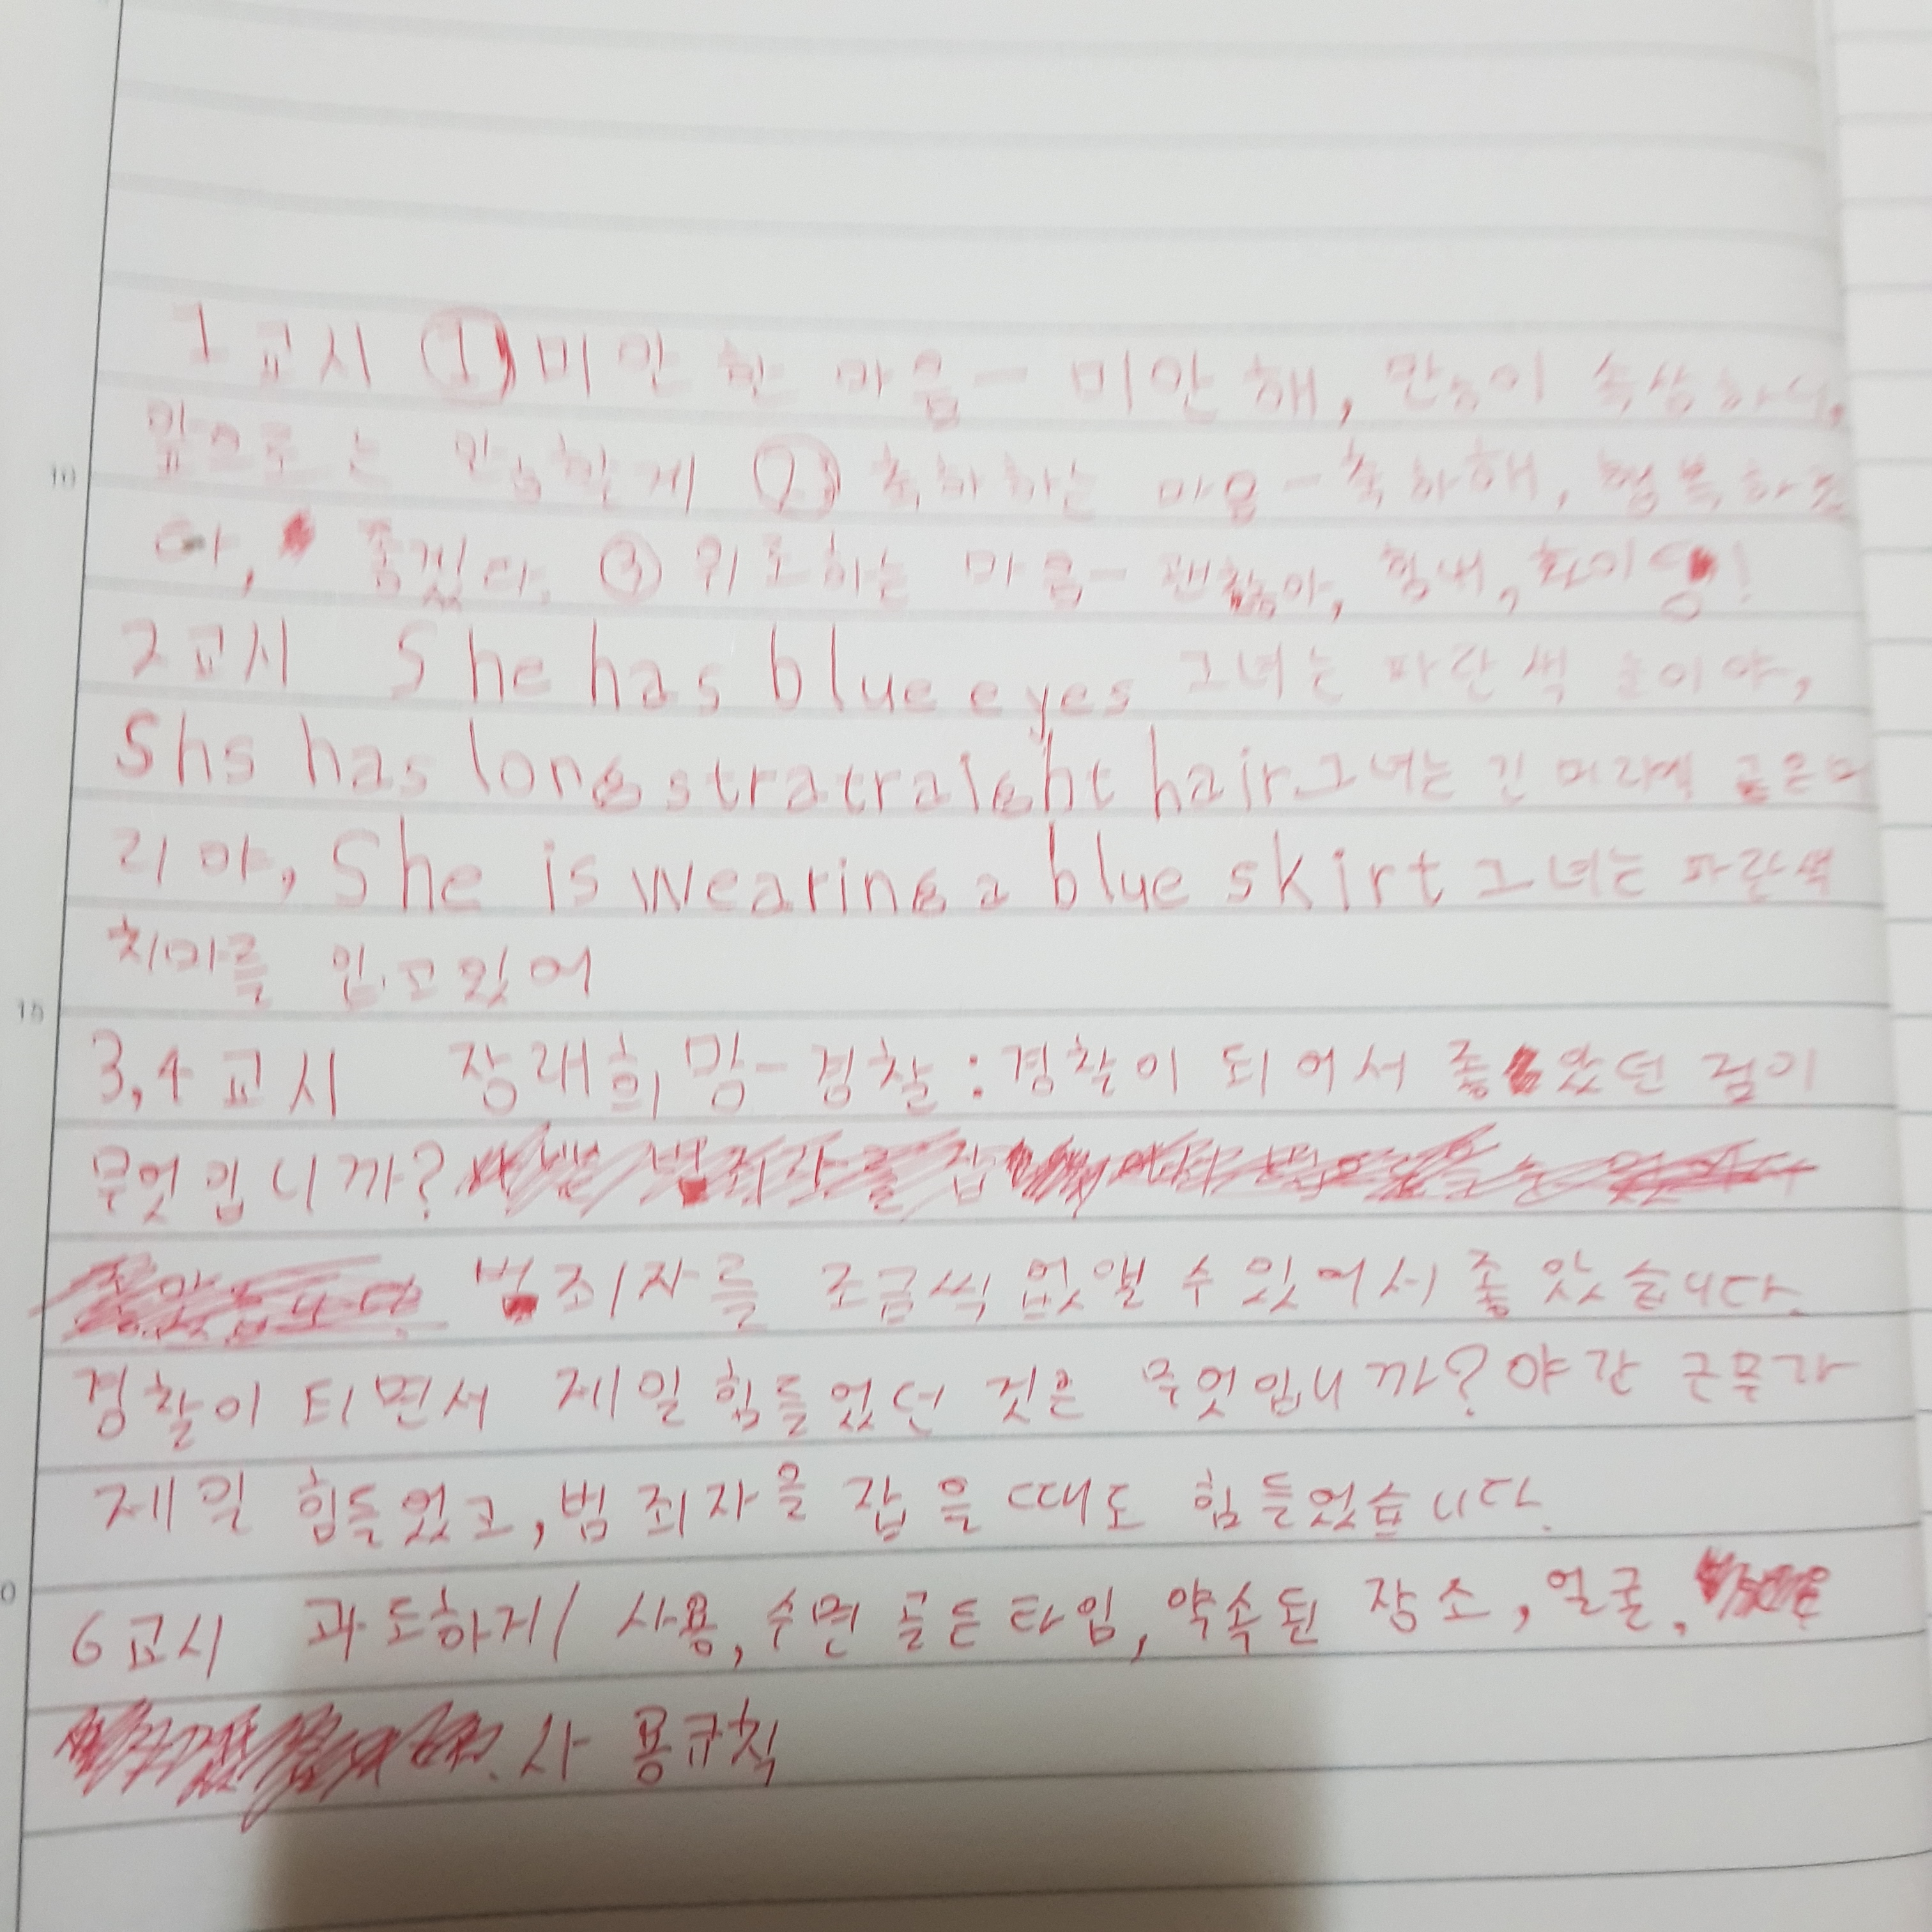 1교시 ① 미안한 마음- 미안해, 많이 속상하지,
앞으로는 안 할게 ② 축하하는 마음- 축하해, 행복하
야, 좋겠다. ③ 위로하는 마음- 괜찮아, 힘내, 파이팅!
2교시 She has blue eyes 그녀는 파란색 눈이야,
Shs has long stratraight hair 그녀는 긴 머리에 곧은머
리야, She is wearing a blue skirt 그녀는 파란색
치마를 입고있어
3,4교시 장래희망-경찰:경찰이 되어서 좋았던 점이
무엇입니까?
범죄자를 조금씩 없앨 수 있어서 좋았습니다.
경찰이 되면서 제일 힘들었던 것은 무엇입니까? 야간 근무가
제일 힘들었고, 범죄자을 잡을 때도 힘들었습니다.
6교시 과도하게/ 사용, 수면 골든타임, 약속된 장소, 얼굴,
사용규칙